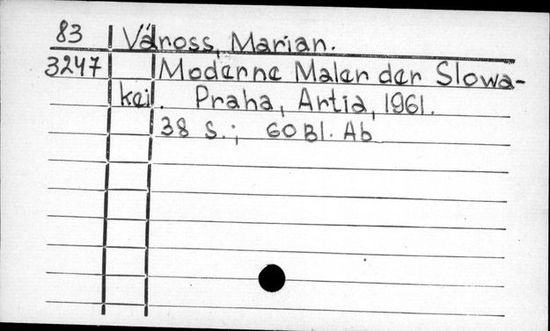 83 Váross, Marian.
3247 Moderne Maler der Slowa-
kei. Praha, Artia, 1961.
38 S.; 60 Bl. Ab